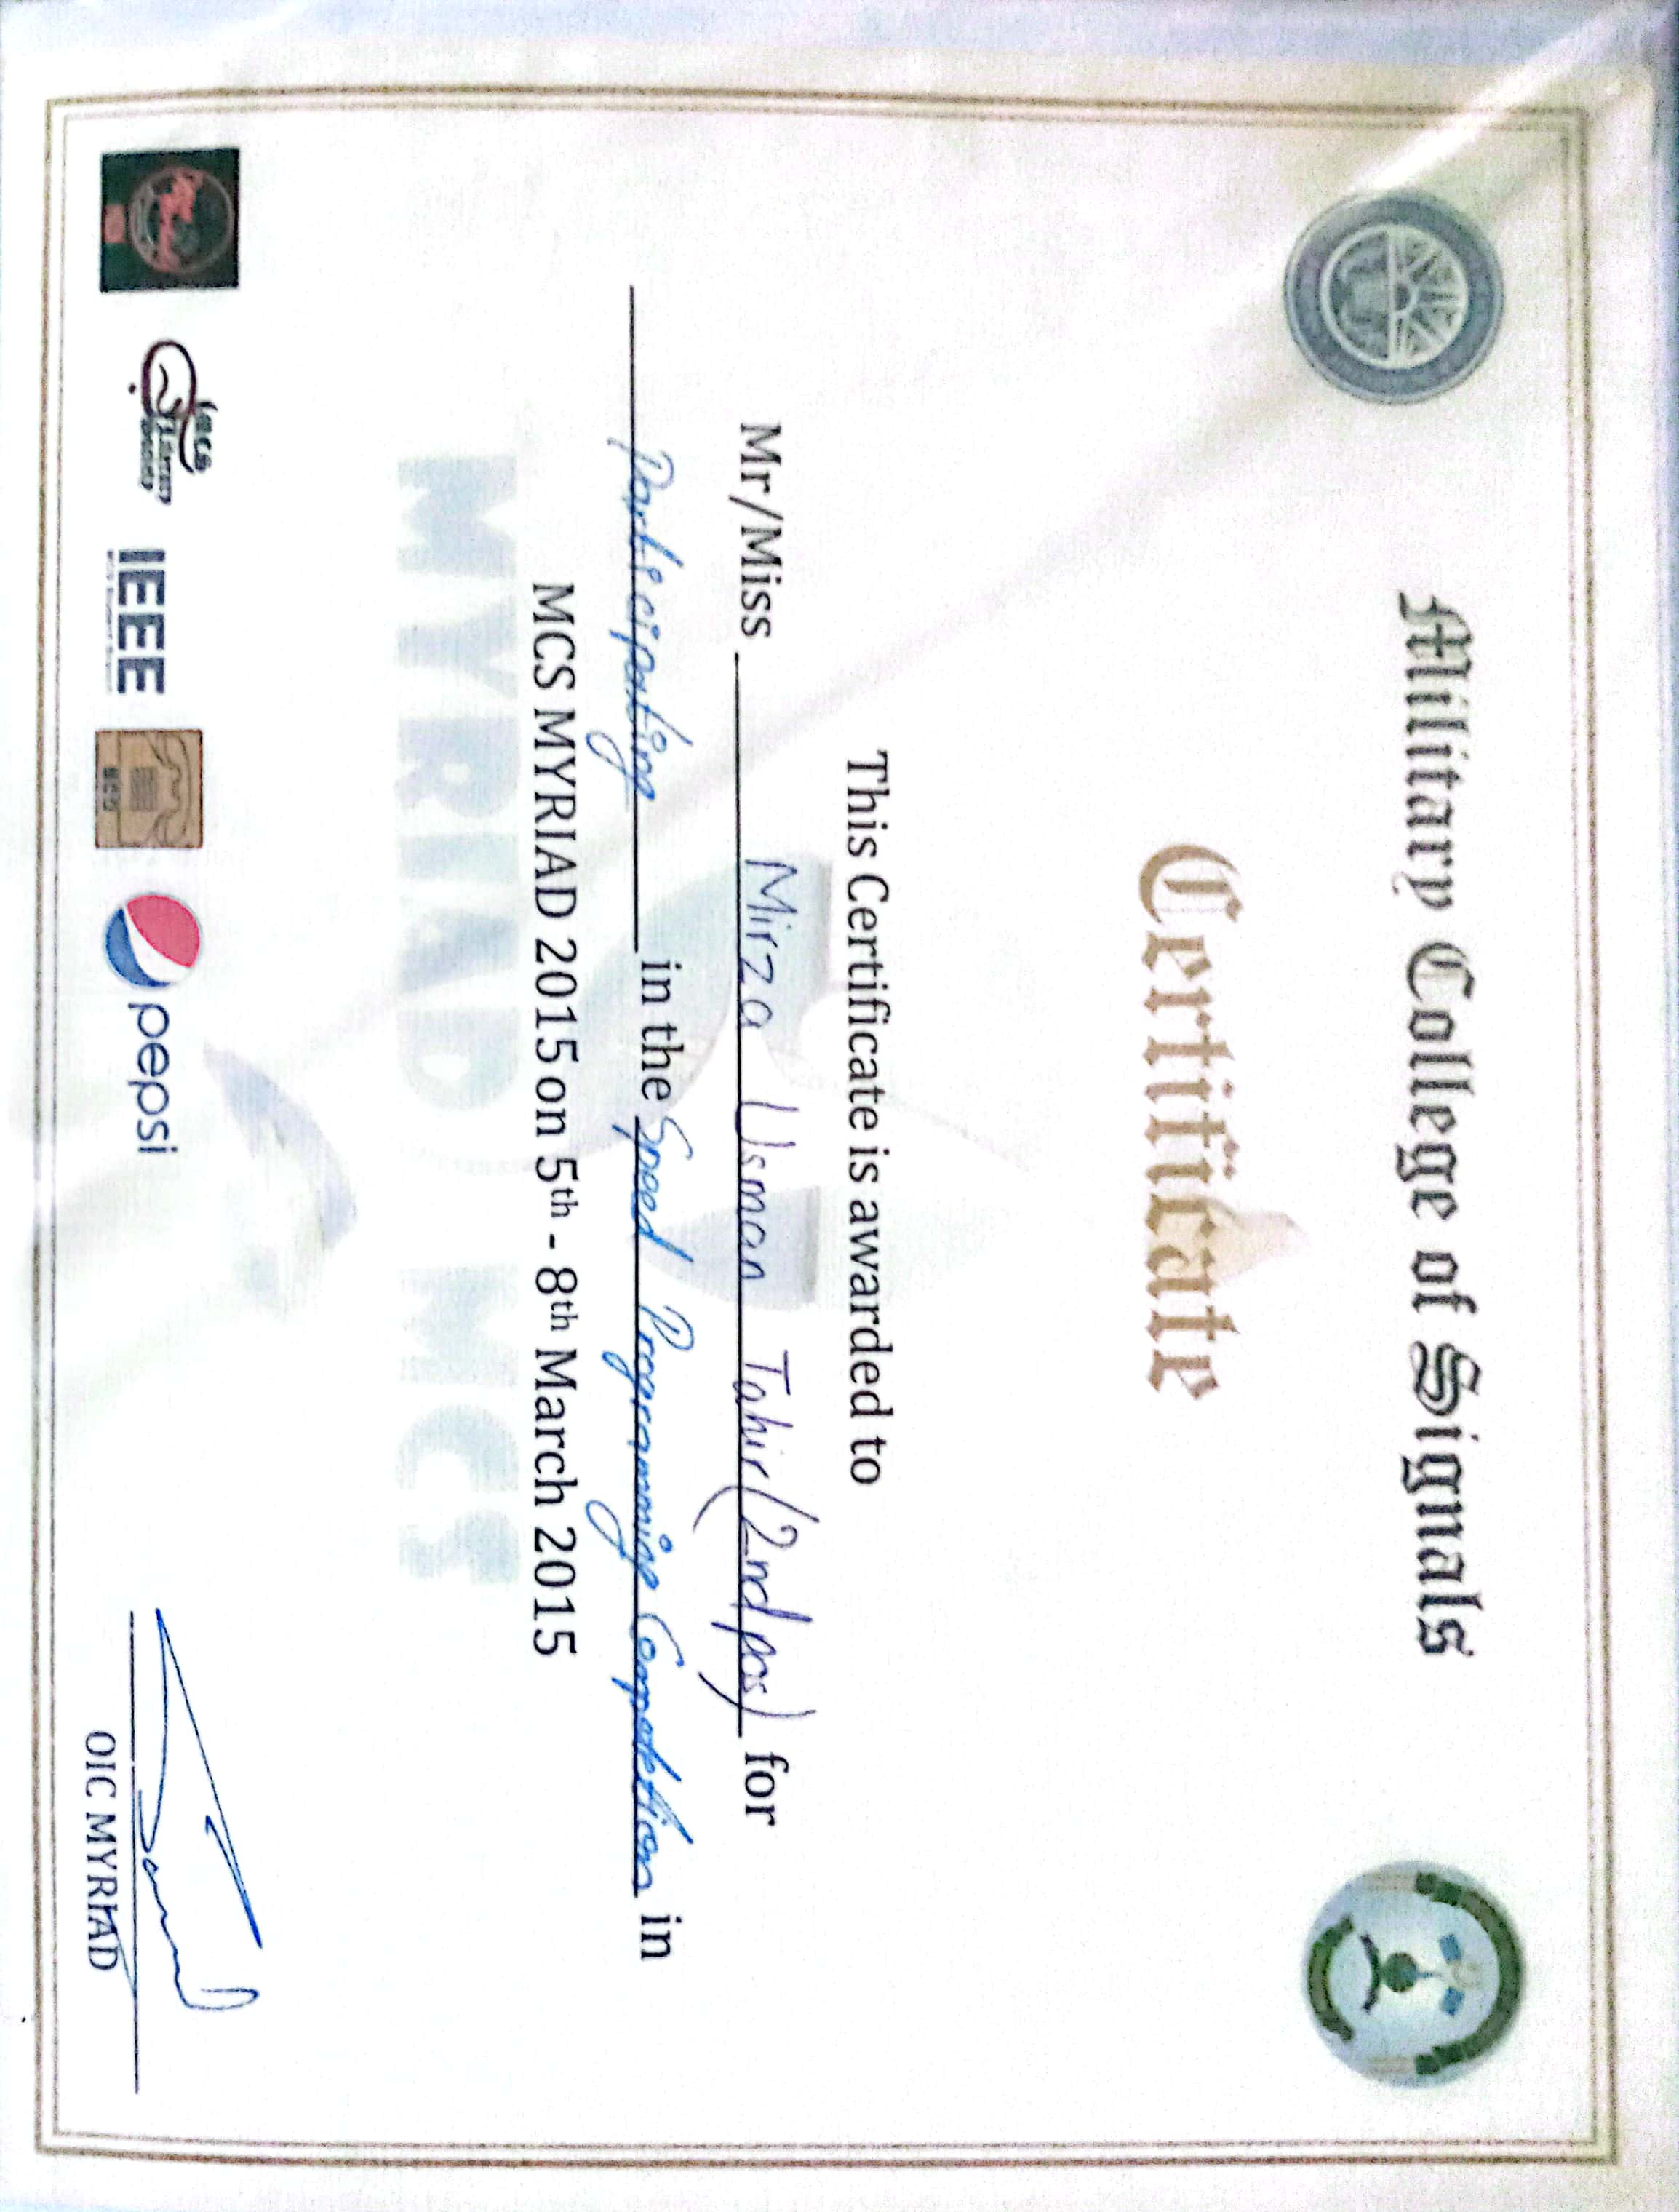 Military College of Signals
Certificate
This Certificate is awarded to
Mr/Miss Mirza Usman Tahir (2nd pos) for
Participating in the Speed Programming Competetion in
MCS MYRIAD 2015 on 5th - 8th March 2015
MYRIAD MCS
MCS
Literary
Society
IEEE
MCS Student Branch
pepsi
OIC MYRIAD